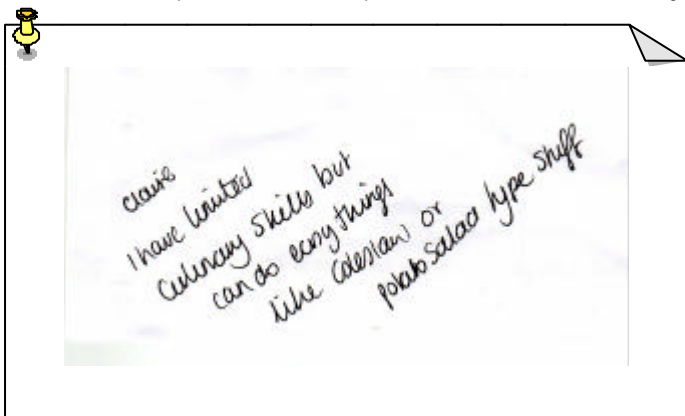 claire
I have limited
culinary skills but
can do easy things
like coleslaw or
potato salad type stuff